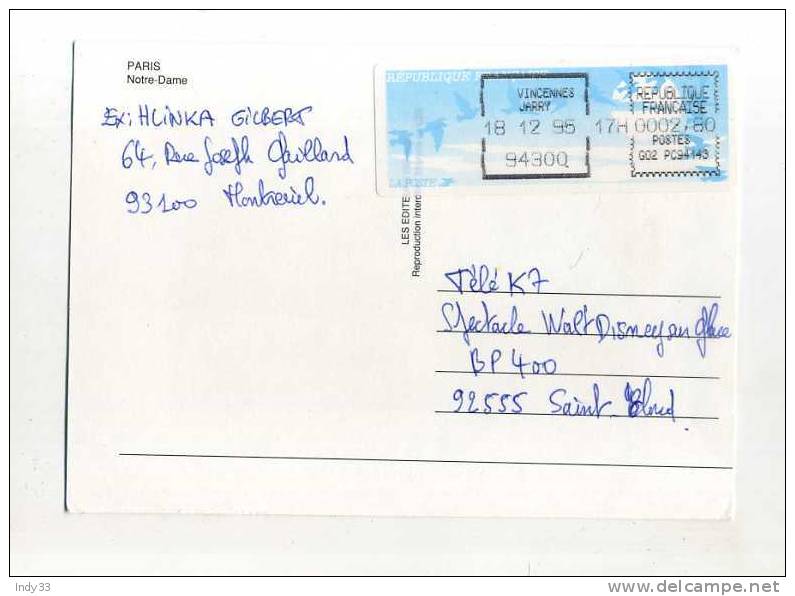 PARIS
Notre-Dame
Ex: HLINKA GILBERT
64, Rue Joseph Gaillard
93100 Montreuil.
RÉPUBLIQUE
VINCENNES
JARRY
18 12 95 17H
94300
REPUBLIQUE
FRANCAISE
0002,80
POSTES
G02 PC94143
LA POSTE
LES EDITE
Reproduction interd
Télé K7
Spectacle Walt Disney sur glace
BP 400
92555 Saint Cloud
Indy33
delcampe.net